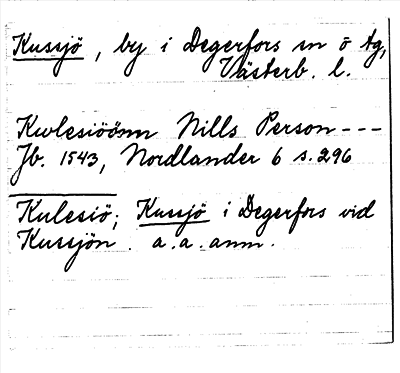 Kussjö, by i Degerfors sn ö tg,
Västerb. l.
Kwlesiöönn Nills Person---
Jb. 1543, Nordlander 6 s. 296
Kulesiö; Kussjö i Degerfors vid
Kussjön. a.a. anm.